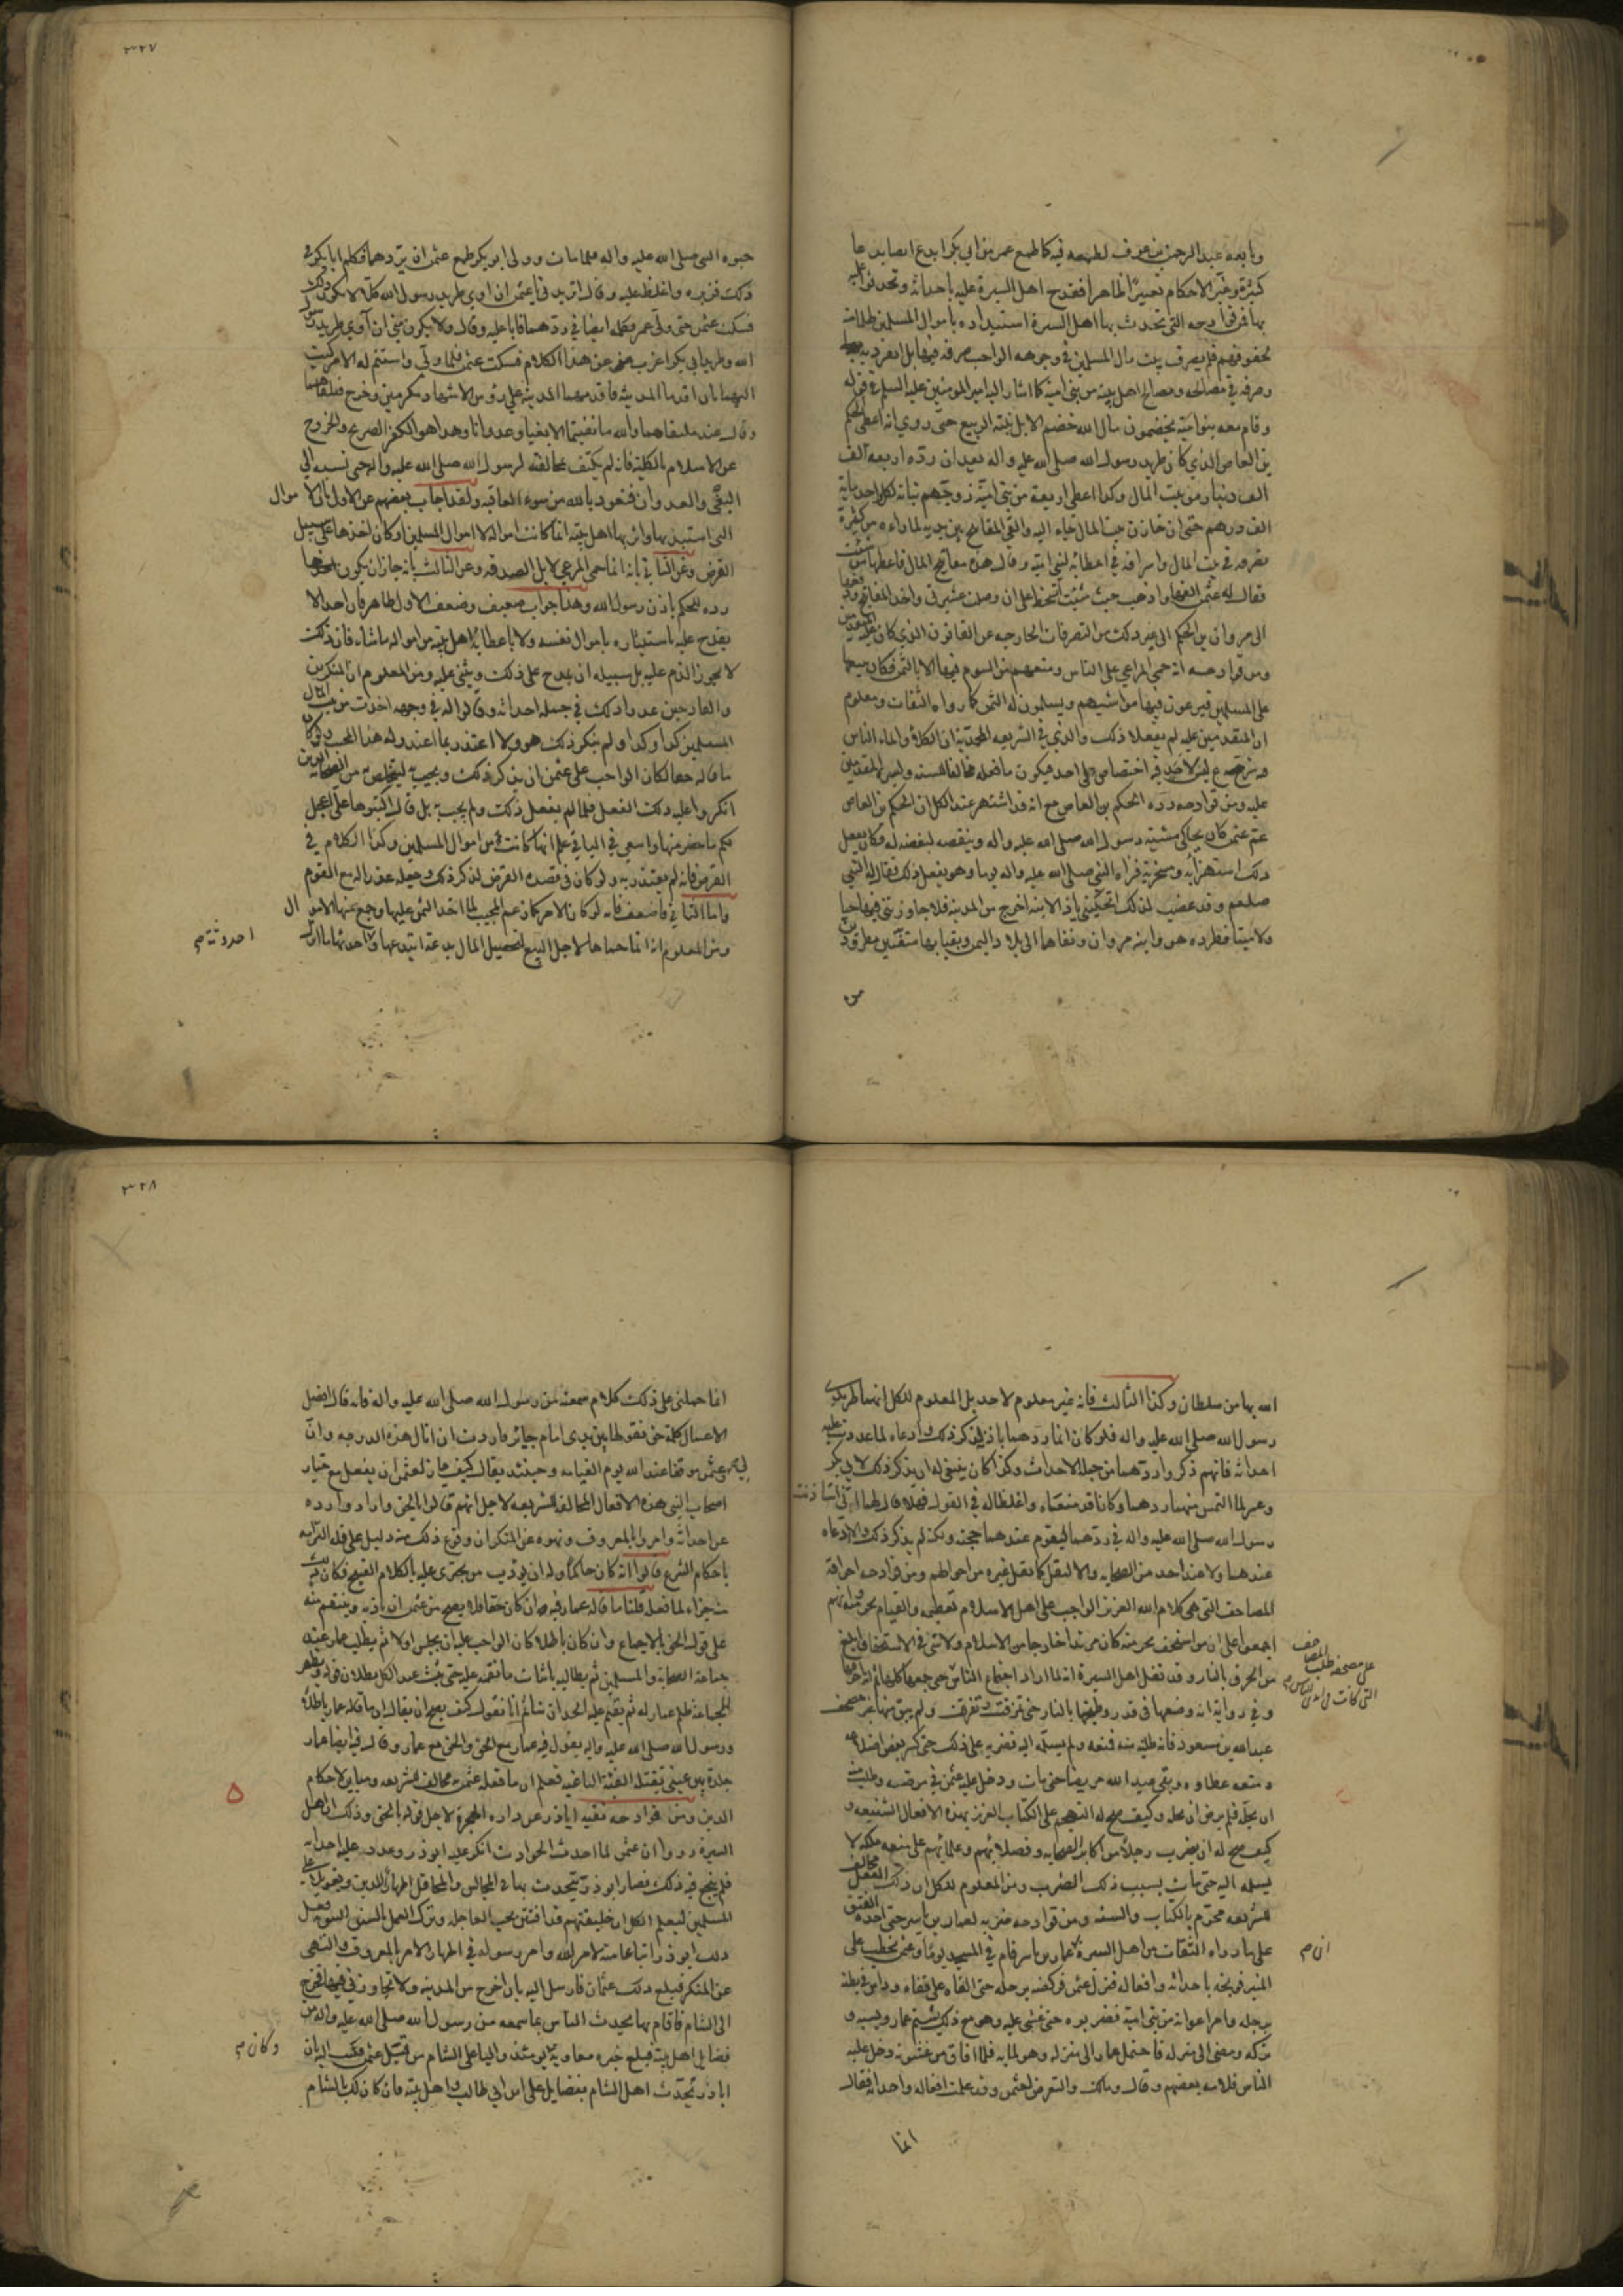 وبايعه عبد الرحمن بن عوف لطمعه فيه كما طمع عمر من ابي بكر ابدع ايضا بدعا
كثيرة وغير الاحكام تغييرا ظاهرا فقدح اهل السيرة عليه باحداثه وتحدثوا عليه
بها فمن قوادحه التي تحدث بها اهل السيرة استبداده باموال المسلمين
بحقوقهم فلم يصرف بيت مال المسلمين في وجوهه الواجب صرفه فيها بل انفرد به
وصرفه في مصالحه ومصالح اهل بيته من بني امية كما اشار اليه امير المؤمنين عليه السلم في قوله
وقام معه بنو امية يخضمون مال الله خضم الابل نبتة الربيع حتى روي انه اعطى الحكم
بن العاص الذي كان طريد رسول الله صلى الله عليه واله بعد ان رده اربعمائة الف
الف دينار من بيت المال وكذا اعطى اربعة من بني امية زوجهم بناته لكل واحد مائة
الف درهم حتى ان خازن بيت المال جاء اليه والقى المفاتيح بين يديه لما راه من كثرة
تصرفه في بيت المال واسرافه في اعطائه لبني امية وقال هذه مفاتيح المال فاعطها من شئت
فقال له عثمن القها واذهب حيث شئت واخذ المفاتيح ودفعها
الى مروان بن الحكم الى غير ذلك من التصرفات الخارجة عن القانون الذي كان عليه
ومن قوادحه انه حمى المراعي على الناس ومنعهم من السوم فيها الا بالثمن فكان يبيعها
على المسلمين فيرعون فيها مواشيهم ويسلمون له الثمن كما رواه الثقات ومعلوم
ان المتقدمين عليه لم يفعلا ذلك والذي في الشريعة المحمدية ان الكلاء والماء الناس
فيه شرع ليس لاحد فيه اختصاص على احد فيكون ما فعله مخالفا للسنة ولسيرة المتقدمين
عليه ومن قوادحه رده الحكم بن العاص مع انه قد اشتهر عند الكل ان الحكم بن العاص
عم عثمن كان يحاكي مشية رسول الله صلى الله عليه واله وينقصه لبغضه له وكان يفعل
ذلك استهزائه وسخرية فراه النبي صلى الله عليه واله يوما وهو يفعل ذلك فقال له النبي
صلعم وقد غضب لذلك اخرج من المدينة فلا جاورتني فيها حيا
ولا ميتا فطرده هو وابنه مروان ونفاهما الى بلاد اليمن وبقيا بها منفيين مطرودين
من
٣٢٧
حيوة النبي صلى الله عليه واله فلما مات وولى ابو بكر طمع عثمن ان يردهما فكلم ابا بكر في
ذلك فزبره واغلظ عليه وقال اتريد مني يا عثمن ان اوي طريد رسول الله كلا لا يكون ذلك
فسكت عثمن حتى ولى عمر فكلمه ايضا في ردهما فابا عليه وقال ولا يكون مني ان آوي طريد رسول
الله وطريد ابي بكر اعزب عني عن هذا الكلام فسكت عثمن فلما ولي واستتم له الامر كتب
اليهما بان اقدما المدينة فاقدمهما المدينة على رؤس الاشهاد مكرمين وخرج فتلقاهما
وقال عند ملتقاهما والله ما نفيتما الا بغيا وعدوانا وهذا هو الكفر الصريح والخروج
عن الاسلام بالكلية فانه لم يكتف بمخالفته لرسول الله صلى الله عليه واله حتى نسبه الى
البغي والعدوان فنعوذ بالله من سوء العاقبة ولقد اجاب بعضهم عن الاول بان الاموال
التي استبد بها واثر بها اهل بيته انما كانت امواله لا اموال المسلمين او كان اخذها على سبيل
القرض وعن الثاني بانه انما حمى المرعى لابل الصدقة وعن الثالث بانه جاز ان يكون
رده للحكم باذن رسول الله وهذا جواب ضعيف وضعف الاول ظاهر فان احدا لا
يقدح عليه باستيثاره باموال نفسه ولا باعطائه اهل بيته من امواله ما شاء فان ذلك
لا يجوز الذم عليه بل سبيله ان يمدح على ذلك ويثني عليه ومن المعلوم ان المنكرين
والقادحين عدوا ذلك في جملة احداثه وقالوا له في وجهه اخذت من بيت مال
المسلمين كذا وكذا ولم ينكر ذلك هو ولا اعتذر بما اعتذر له هذا المجيب ولو كان
ما قاله حقا لكان الواجب على عثمن ان يذكر ذلك ويجيب به ليتخلص به من الصحابة الذين
انكروا عليه ذلك الفعل فلما لم يفعل ذلك ولم يجب به بل قال اكتبوها على
لكم ما حضر منها واسعى في الباقي علم انها كانت من اموال المسلمين وكذا الكلام في
القرض فانه لم يعتذر به ولو كان في قصده القرض لذكر ذلك وجعله عذرا له مع القوم
واما الثاني فاضعف فانه لو كان الامر كما زعم المجيب لما اخذ الثمن عليها وجمع عنها الاموال
ومن المعلوم انه انما حماها لاجل البيع لتحصيل المال بدعة ابتدعها واحدثها ما انزل
احدوثة م
الله بها من سلطان وكذا الثالث فانه غير معلوم لاحد بل المعلوم للكل انهما طريدي
رسول الله صلى الله عليه واله فلو كان انما ردهما باذنه لذكر ذلك وادعاه لما عددت عليه
احداثه فانهم ذكروا ردهما من جملة الاحداث وكذا كان ينبغي له ان يذكر ذلك لابي بكر
وعمر لما التمس منهما ردهما وكانا قد منعاه واغلظا له في القول فهلا قال لهما اني استاذنت
رسول الله صلى الله عليه واله في ردهما ليقوم عندهما حجته ولكنه لم يذكر ذلك ولا ادعاه
عندهما ولا عند احد من الصحابة والا لنقل كما نقل غيره من احوالهم ومن قوادحه احراقه
المصاحف التي هي كلام الله العزيز الواجب على اهل الاسلام تعظيمه والقيام بحرمته وانهم
اجمعوا على ان من استخف بحرمته كان مرتدا خارجا من الاسلام ولا شئ في الاستخفاف ابلغ
من الحرق بالنار وقد نقل اهل السيرة انه لما اراد اجتماع الناس حتى جمعها كلها ثم انه احرقها
على مصحفه طلب المصاحف
التي كانت في ايدي الناس م
وفي رواية انه وضعها في قدر وطبخها بالنار حتى تمزقت وتفرقت ولم يبق منها غير مصحف
عبد الله بن مسعود فانه طلبه منه فمنعه ولم يسلمه اليه فضربه على ذلك حتى كسر بعض اضلاعه
ومنعه عطاوه وبقى عبد الله مريضا حتى مات ودخل عليه عثمن في مرضه وطلب منه
ان يحله فلم يرض ان يحله وكيف صح له التهجم على الكتاب العزيز بهذه الافعال الشنيعة و
كيف صح له ان يضرب رجلا من اكابر الصحابة وفضلائهم وعلمائهم على منعه ملكه لا
يسلمه اليه حتى مات بسبب ذلك الضرب ومن المعلوم للكل ان ذلك الفعل مخالف
للشريعة محرم بالكتاب والسنة ومن قوادحه ضربه لعمار بن ياسر حتى احدث به الفتق
على ما رواه الثقات من اهل السيرة عمار بن ياسر قام في المسجد يوما وعثمن يخطب على
ان م
المنبر فوبخه باحداثه وافعاله فنزل عثمن فركضه برجله حتى القاه على قفاه وداس في بطنه
برجله وامر اعوانه من بني امية فضربوه حتى غشي عليه وهو مع ذلك يشتم عمار ويسبه و
تركه ومضى الى منزله فاحتمل عمار الى منزله وهو لما به فلما افاق من غشوته دخل عليه
الناس فلامه بعضهم وقال ومالك والتعرض لعثمن وقد علمت افعاله واحداثه فقال
انما
٣٢٨
انما حملني على ذلك كلام سمعته من رسول الله صلى الله عليه واله فانه قال افضل
الاعمال كلمة حق تقولها بين يدي امام جائر فاردت ان انال هذه الدرجة وان
لي مع عثمن موقفا عند الله يوم القيامة وحينئذ يقال كيف جاز لعثمن ان يفعل مع خيار
اصحاب النبي هذه الافعال المخالفة للشريعة لاجل انهم قالوا الحق وارادوا رده
عن احداثه وامروا بالمعروف ونهوه عن المنكر ان وقوع ذلك منه دليل على قلة التزامه
باحكام الشرع قالوا انه كان حاكما وله ان يؤدب من يجترى عليه بالكلام القبيح فكان
جزاء لما فعله قلنا ما قاله عمار فيه ان كان حقا فلا يصح من عثمن ان يأذيه وينتقم منه
على قوله الحق بالاجماع وان كان باطلا كان الواجب عليه ان يجلس اولا ثم يطلب عمار عنده
جماعة الصحابة والمسلمين ثم يطالبه باثبات ما نقمه عليه حتى يثبت عند الكل بطلان قوله ويظهر
للجماعة ظلم عمار له ثم يقيم عليه الحد ان شاء ثم انا نقول كيف يصح ان يقال ان ما قاله عمار باطلا
ورسول الله صلى الله عليه واله يقول فيه عمار مع الحق والحق مع عمار وقال فيه ايضا عمار
جلدة بين عيني تقتله الفئة الباغية فعلم ان ما فعله عثمن مخالف للشريعة ومباين لاحكام
الدين ومن قوادحه نفيه اباذر عن داره الهجرة لاجل قوله بالحق وذلك ان اهل
السيرة رووا ان عثمن لما احدث الحوادث انكر عليه ابوذر وعدد عليه احداثه
فلم ينجع فيه ذلك فصار ابوذر يتحدث بها في المجالس والمحافل اظهارا للدين وتقوية على
المسلمين ليعلم الكل ان خليفتهم قد افتتن بحب العاجلة وترك العمل بالسنن النبوية فعل
ذلك ابوذر اتباعا منه لامر الله وامر رسوله في اظهار الامر بالمعروف والنهي
عن المنكر فبلغ ذلك عثمان فارسل اليه بان اخرج من المدينة ولا تجاورني فيها فخرج
الى الشام فاقام بها يحدث الناس بما سمعه من رسول الله صلى الله عليه واله من
فضايل اهل بيته فبلغ خبره معاوية يومئذ واليا على الشام من قبل عثمن فكتب اليه بان
وكان م
اباذر يحدث اهل الشام بفضايل علي ابن ابي طالب واهل بيته فان كان لك بالشام